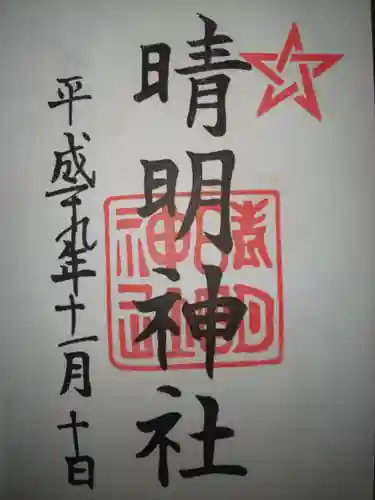 晴明神社
晴明神社
平成二十九年十一月十日